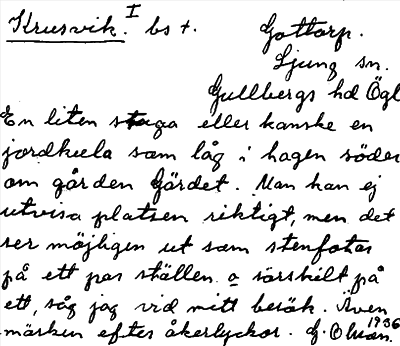 Krusvik. I bs t. Gottorp.
Ljung sn.
Gullbergs hd Ögl
En liten stuga eller kanske en
jordkula som låg i hagen söder
om gården Gärdet. Man kan ej
utvisa platsen riktigt, men det
ser möjligen ut som stenfoten
på ett par ställen o särskilt på
ett, såg jag vid mitt besök. Även
märken efter åkerlyckor. G. Olsson.
1936